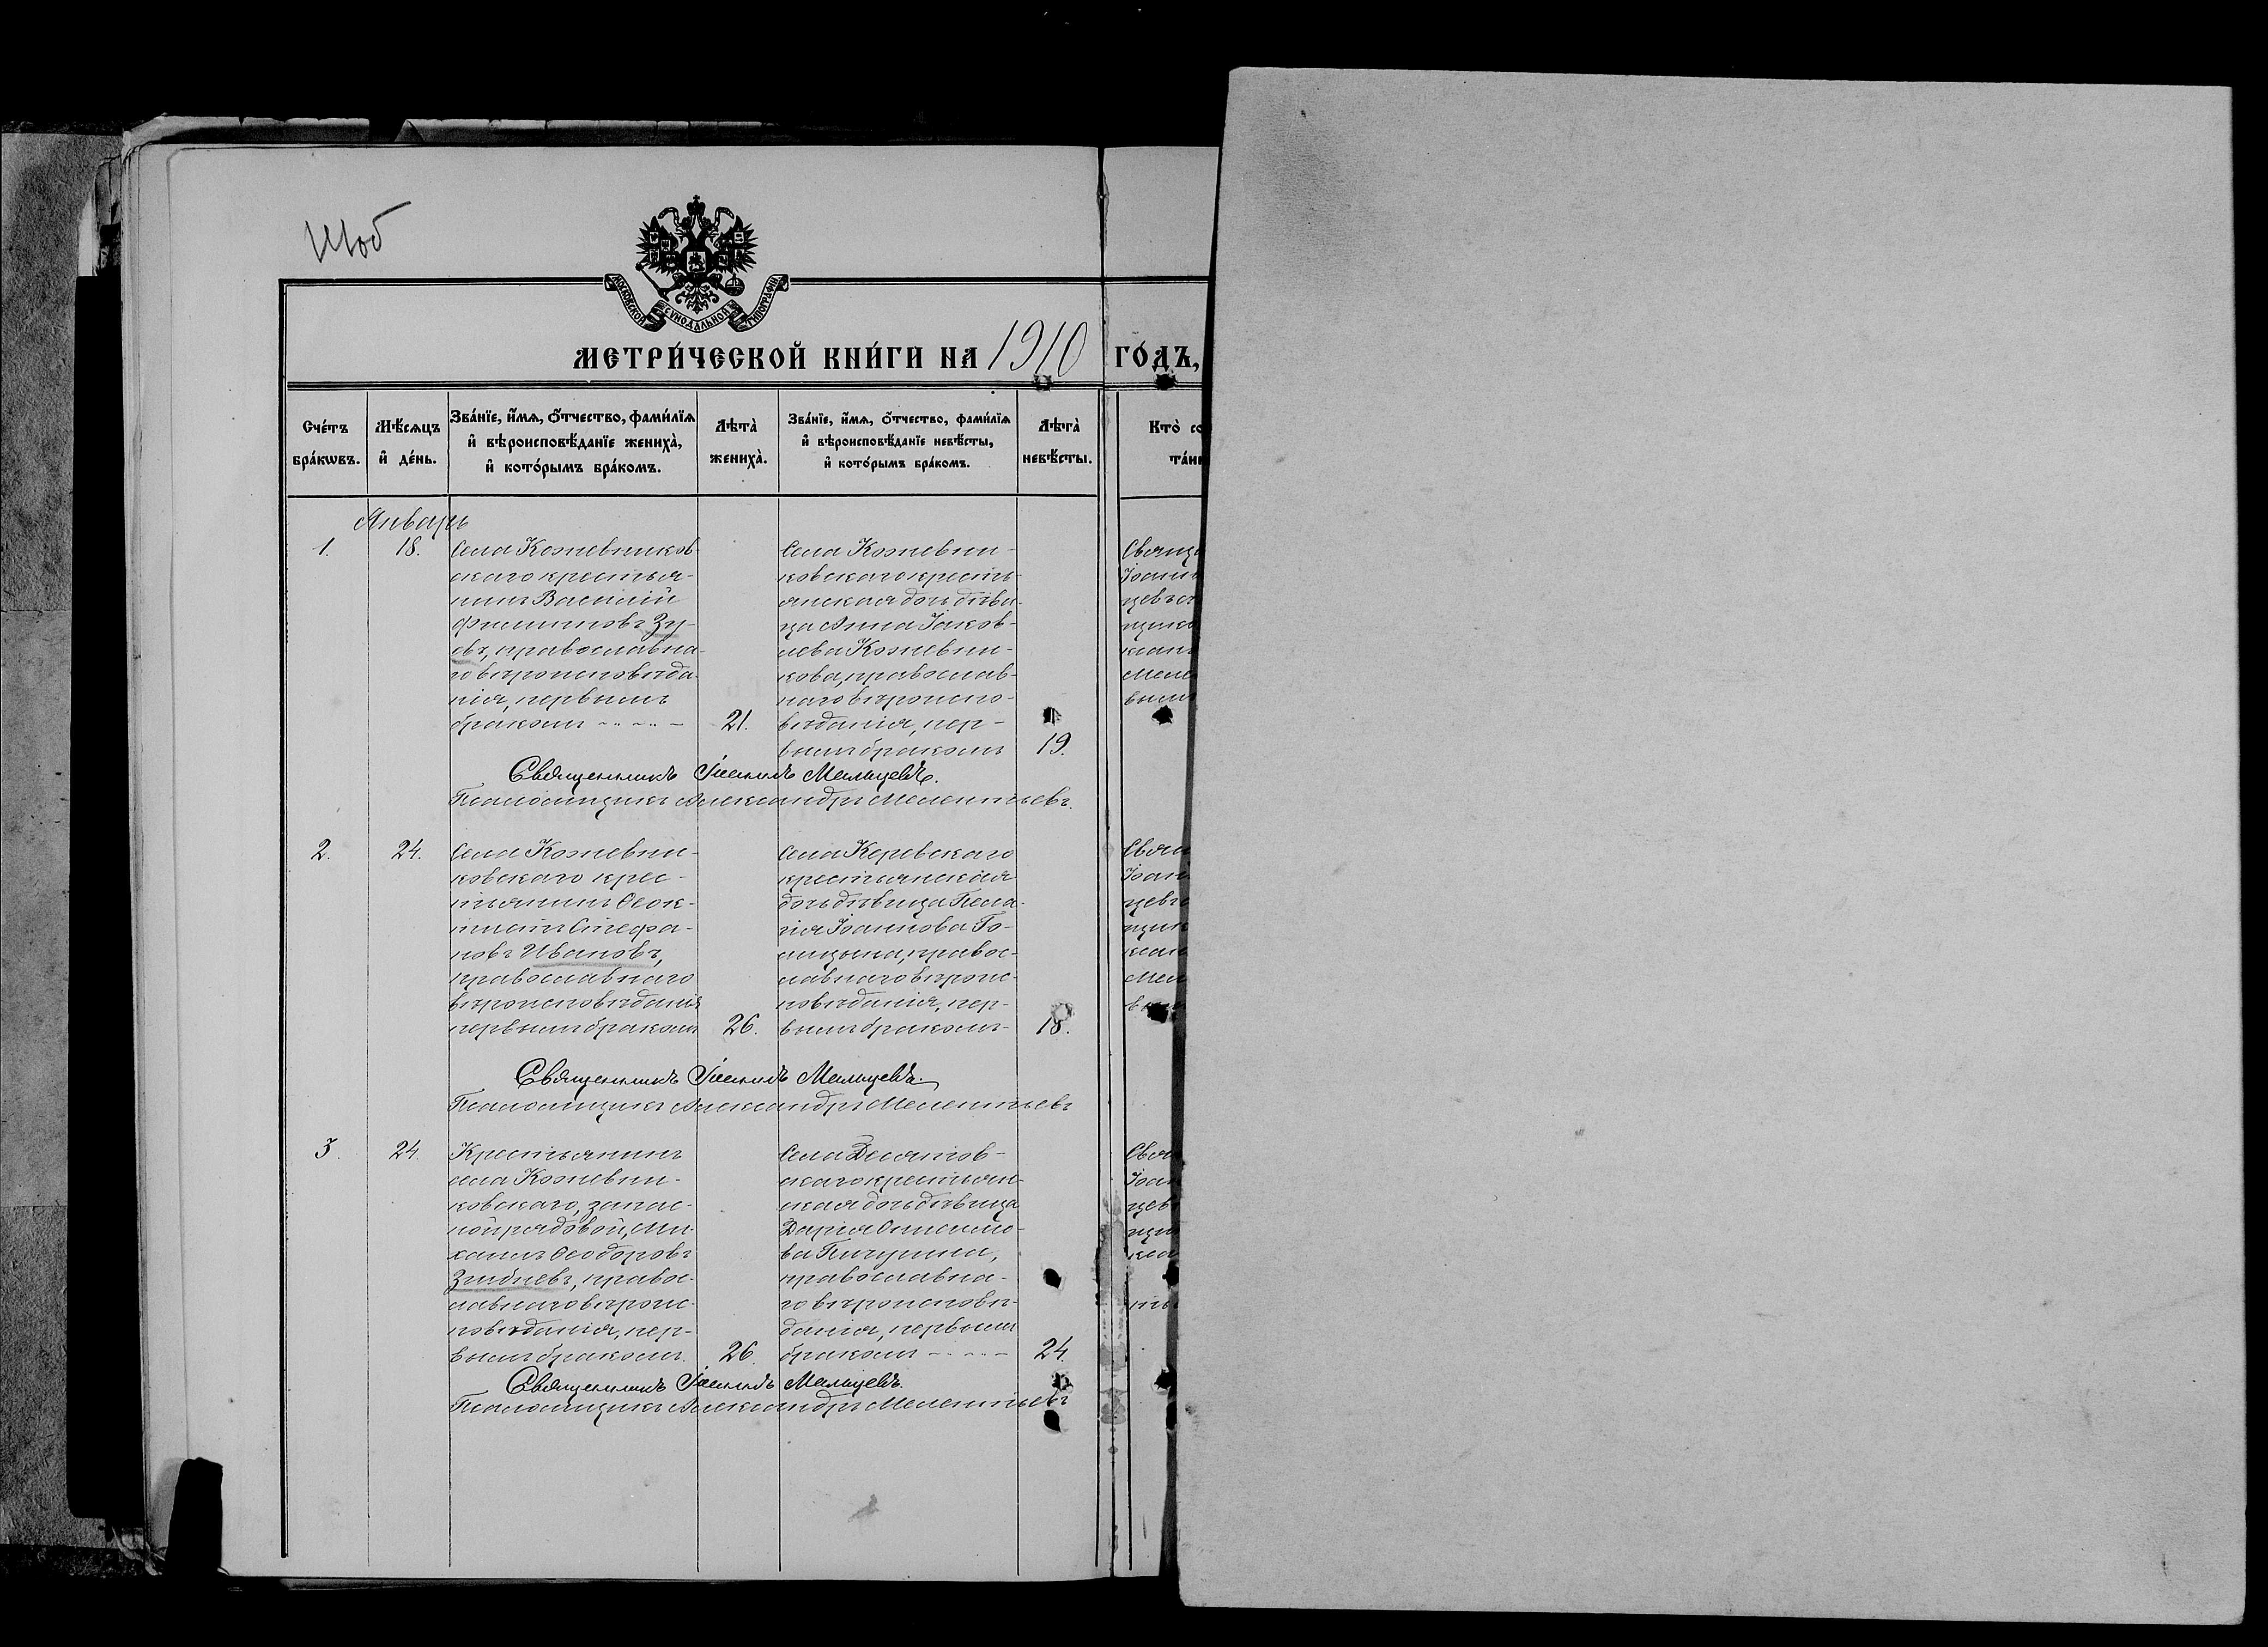 МОСКОВСКОЙ СѴНОДАЛЬНОЙ ТИПОГРАФІИ.
МЕТРИ́ЧЕСКОЙ КНИ́ГИ НА 1910 ГО́ДЪ,
Сче́тъ бра́кѡвъ.
Мѣ́сѧцъ и҆ де́нь.
Зва́нїе, и҆́мѧ, ѻ҆́тчество, фами́лїѧ
и҆ вѣроисповѣ́данїе жениха̀,
и҆ кото́рымъ бра́комъ.
Лѣта̀ жениха̀.
Зва́нїе, и҆́мѧ, ѻ҆́тчество, фами́лїѧ
и҆ вѣроисповѣ́данїе невѣ́сты,
и҆ кото́рымъ бра́комъ.
Лѣта̀ невѣ́сты.
Кто̀ со
та́ин
Январь
1. 18.
Села Кожевников
скаго крестья-
нинъ Василій
Филиповъ Зу-
евъ, православна-
го вѣроисповѣда-
нія, первымъ
бракомъ
21.
Села Кожевни-
ковскаго кресть-
янская дочь дѣви-
ца Анна Іаков-
лева Кожевни-
кова, православ-
наго вѣроиспо-
вѣданія, пер-
вымъ бракомъ
19.
Священникъ Іоаннъ Мальцевъ.
Псаломщикъ Александръ Мелентьевъ.
2. 24.
Села Кожевни-
ковскаго крес-
тьянинъ Ѳеок-
тистъ Стефа-
новъ Ивановъ,
православнаго
вѣроисповѣданія
первымъ бракомъ
26.
Села Киревскаго
крестьянская
дочь дѣвица Пела-
гія Іоаннова Го-
лицына, правос-
лавнаго вѣроис-
повѣданія, пер-
вымъ бракомъ
18.
Священникъ Іоаннъ Мальцевъ.
Псаломщикъ Александръ Мелентьевъ
3. 24.
Крестьянинъ
села Кожевни-
ковскаго, запас-
ной рядовой, Ми-
хаилъ Ѳеодоровъ
Згибневъ, правос-
лавнаго вѣроис-
повѣданія, пер-
вымъ бракомъ.
26.
Села Десятов-
скаго крестьян-
ская дочь дѣвица
Дарія
ва Пичугина,
православна-
го вѣроисповѣ-
данія, первымъ
бракомъ
24.
Священникъ Іоаннъ Мальцевъ.
Псаломщикъ Александръ Мелентьевъ